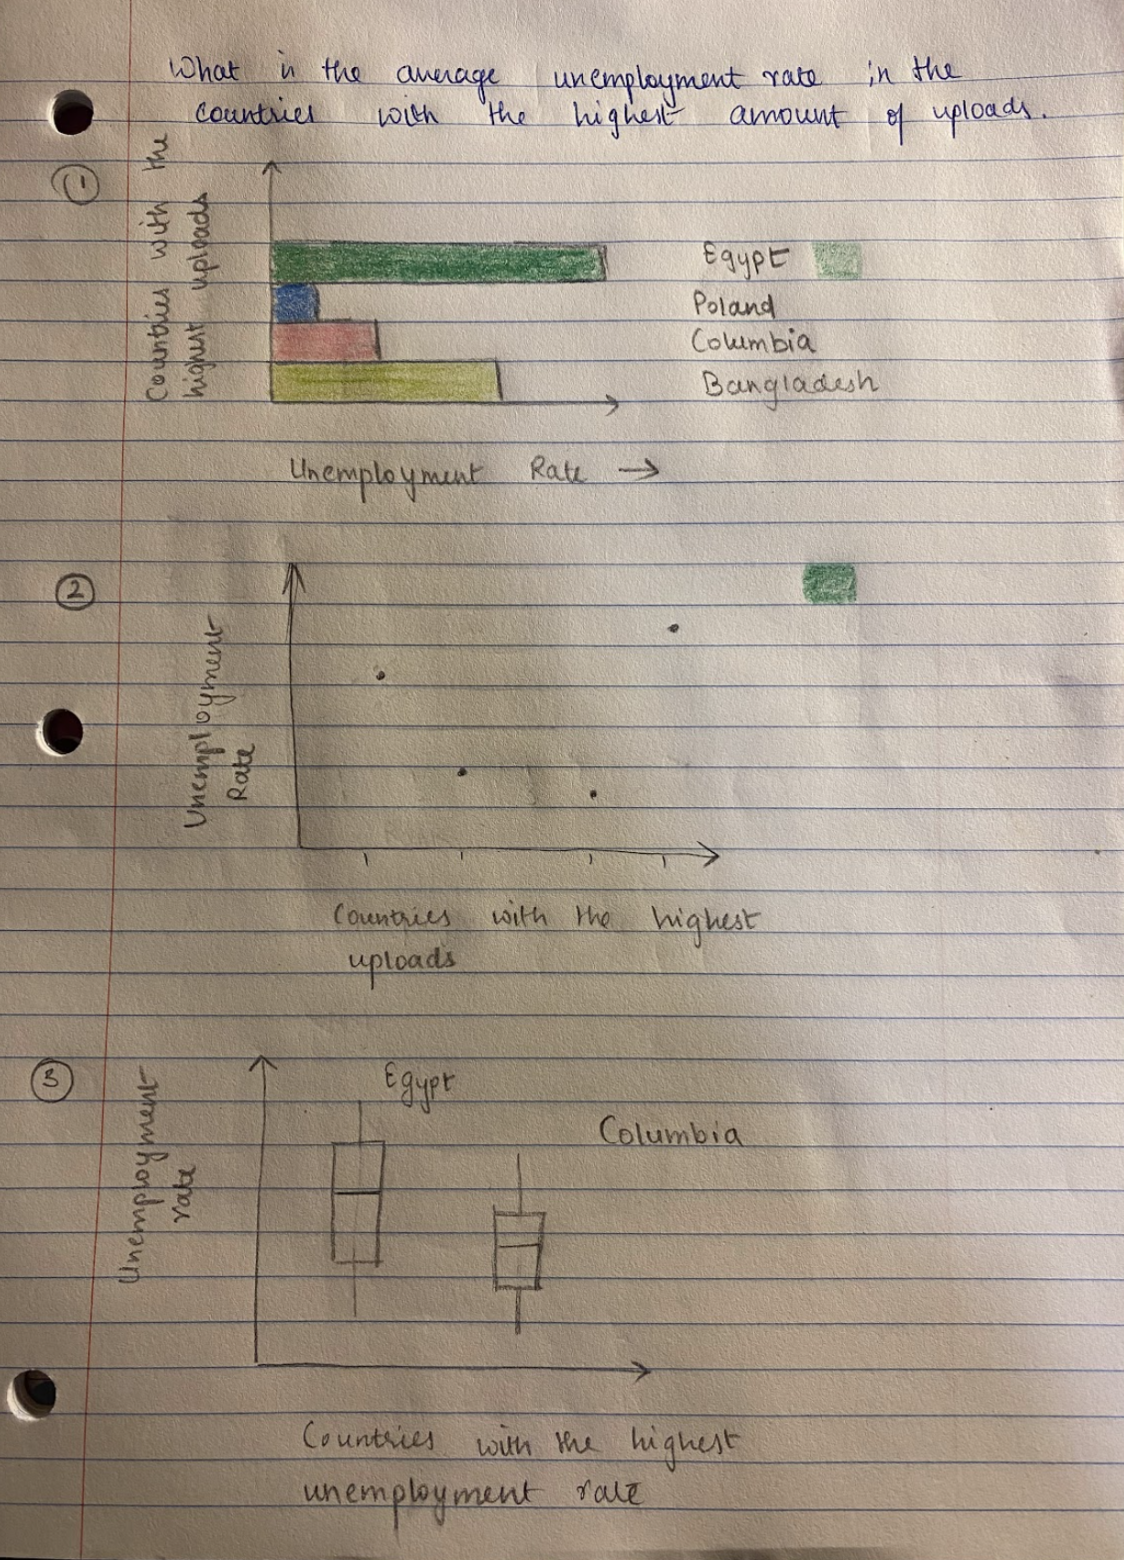 What is the average unemployment rate in the
countries with the highest amount of uploads.
1
Countries with the
highest uploads
Egypt
Poland
Columbia
Bangladesh
Unemployment Rate →
2
Unemployment
Rate
Countries with the highest
uploads
3
Unemployment
rate
Egypt
Columbia
Countries with the highest
unemployment rate